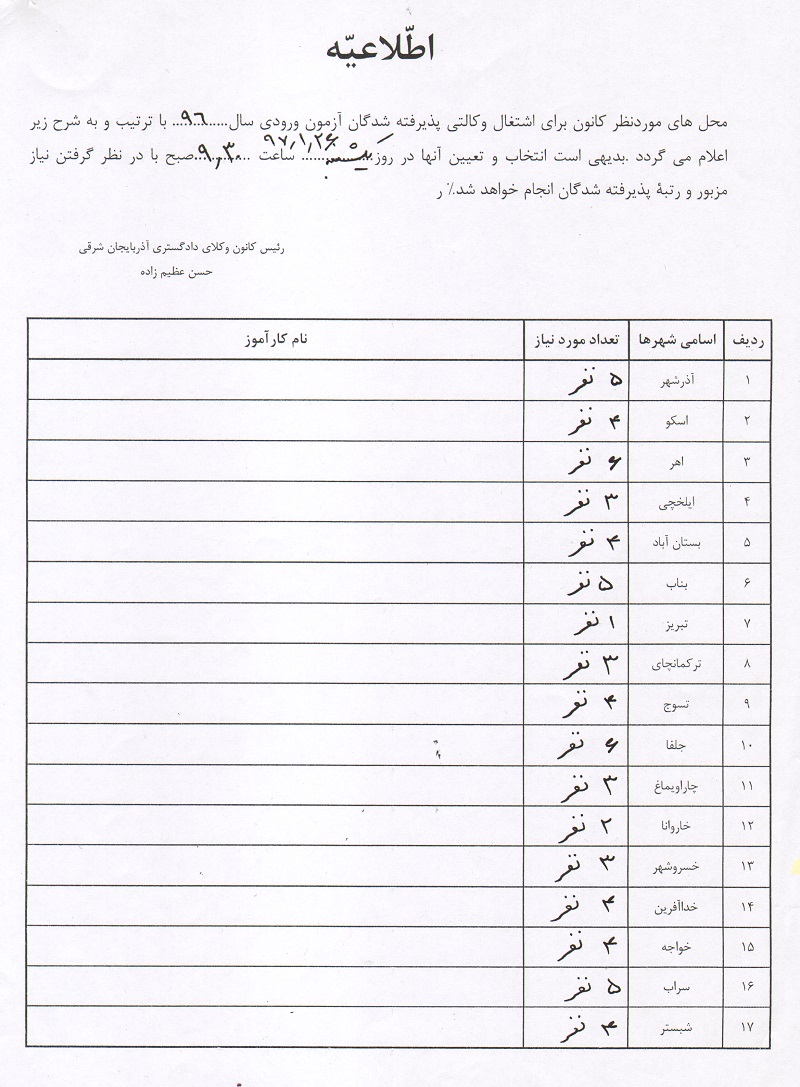 اطّلاعیّه
محل های موردنظر کانون برای اشتغال وکالتی پذیرفته شدگان آزمون ورودی سال.....۹۶... با ترتیب و به شرح زیر
اعلام می گردد .بدیهی است انتخاب و تعیین آنها در روز..یکشنبه ۹۷/۱/۲۶.. ساعت ...۹/۳۰...صبح با در نظر گرفتن نیاز
مزبور و رتبۀ پذیرفته شدگان انجام خواهد شد.٪ ر
رئیس کانون وکلای دادگستری آذربایجان شرقی
حسن عظیم زاده
ردیف اسامی شهرها تعداد مورد نیاز نام کارآموز
۱ آذرشهر ۵ نفر
۲ اسکو ۴ نفر
۳ اهر ۶ نفر
۴ ایلخچی ۳ نفر
۵ بستان آباد ۴ نفر
۶ بناب ۵ نفر
۷ تبریز ۱ نفر
۸ ترکمانچای ۳ نفر
۹ تسوج ۴ نفر
۱۰ جلفا ۶ نفر
۱۱ چاراویماغ ۳ نفر
۱۲ خاروانا ۲ نفر
۱۳ خسروشهر ۳ نفر
۱۴ خداآفرین ۴ نفر
۱۵ خواجه ۴ نفر
۱۶ سراب ۵ نفر
۱۷ شبستر ۴ نفر